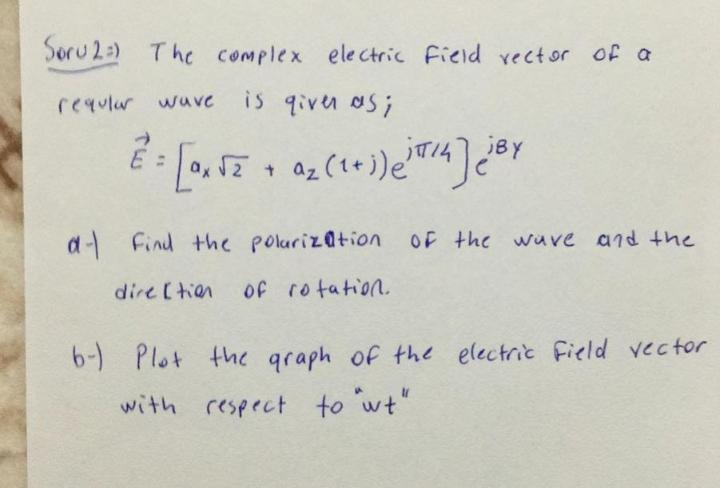 Soru 2=) The complex electric field vector of a
regular wave is given as;
E⃗ = [aₓ√2 + a_z (1+j)e^{jπ/4}] e^{jβy}
a-) Find the polarization of the wave and the
direction of rotation.
b-) Plot the graph of the electric field vector
with respect to "wt"